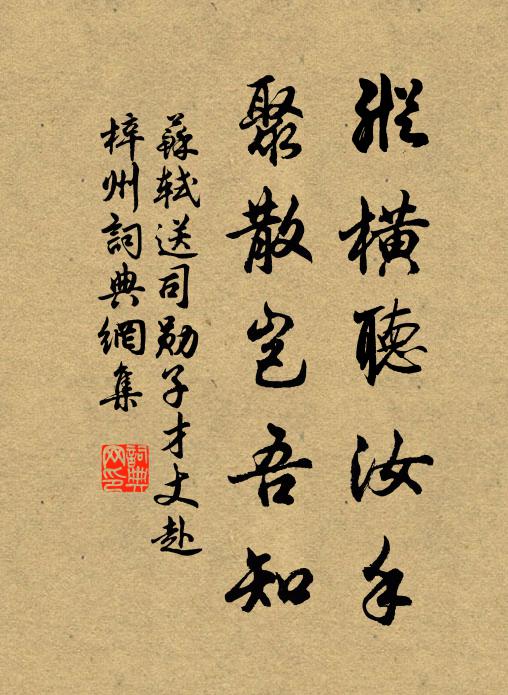 縱橫聽汝手
聚散豈吾知
蘇軾送司勛子才丈赴
梓州詞典網集
詞典
网印